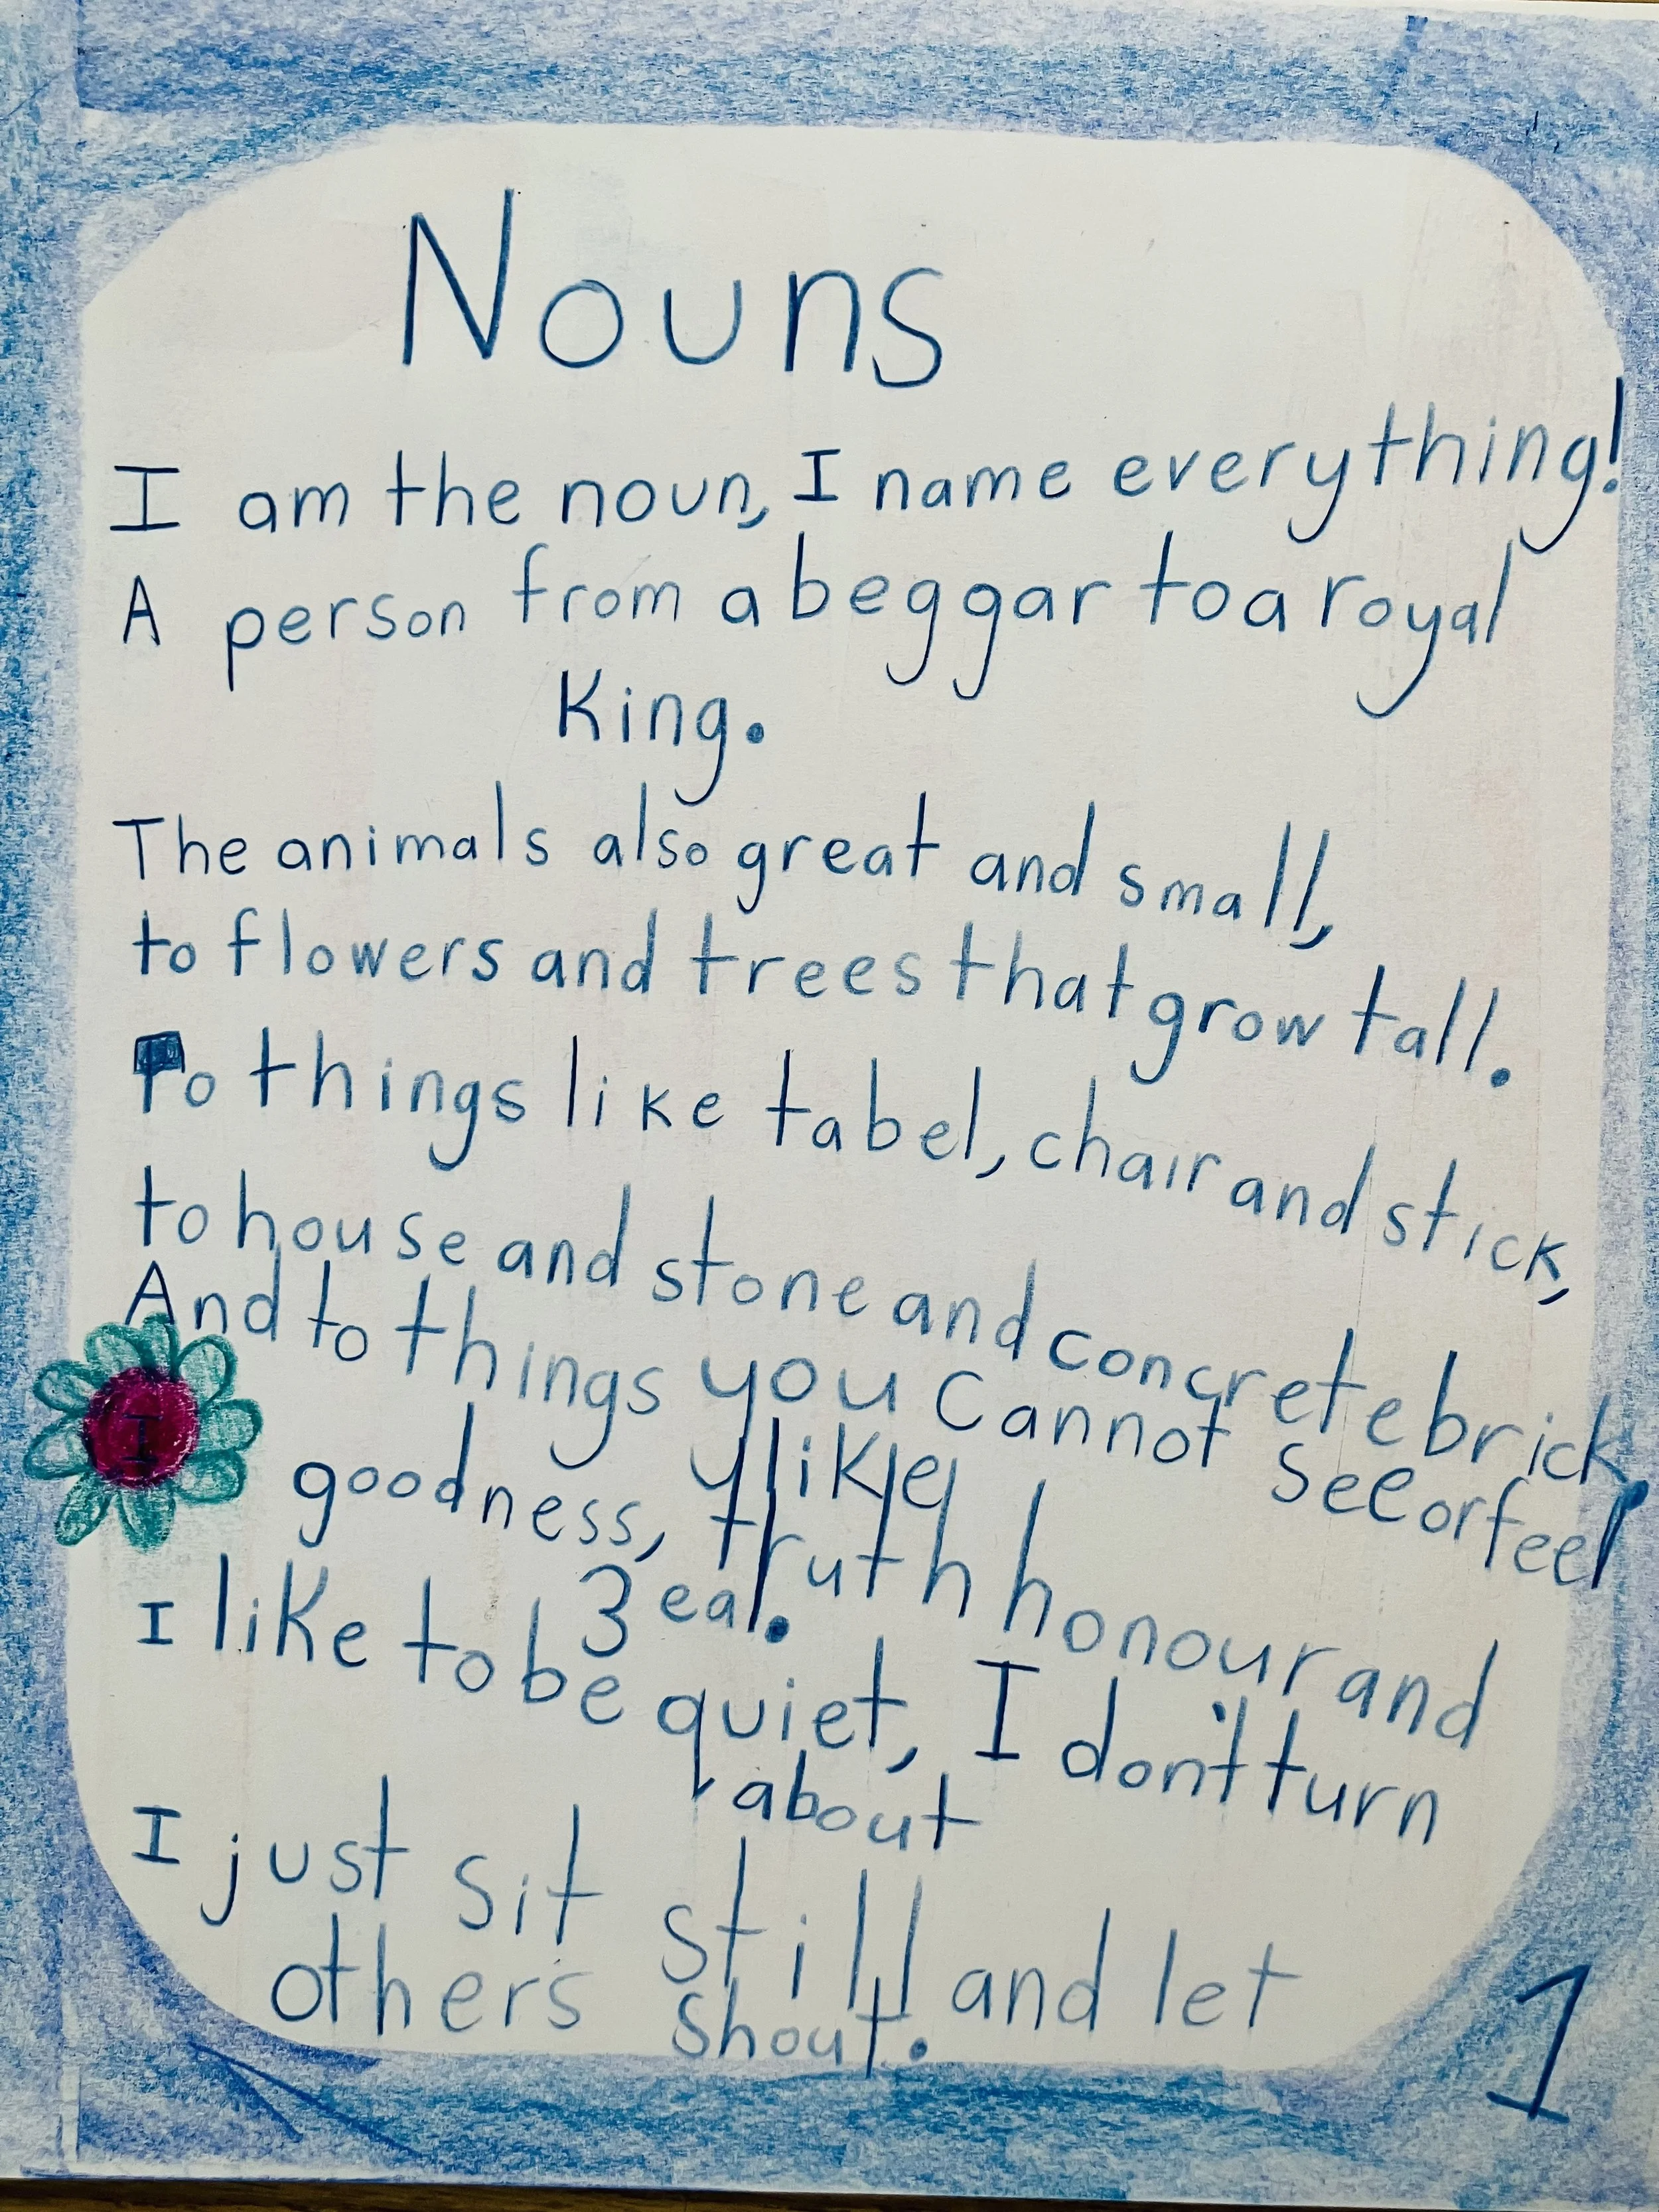 Nouns
I am the noun, I name everything!
A person from a beggar to a royal
King.
The animals also great and small,
to flowers and trees that grow tall.
To things like tabel, chair and stick,
to house and stone and concrete brick.
And to things you cannot see or feel
like
I
goodness, truth honour and
zeal.
I like to be quiet, I don't turn
about
I just sit still and let
others shout.
1